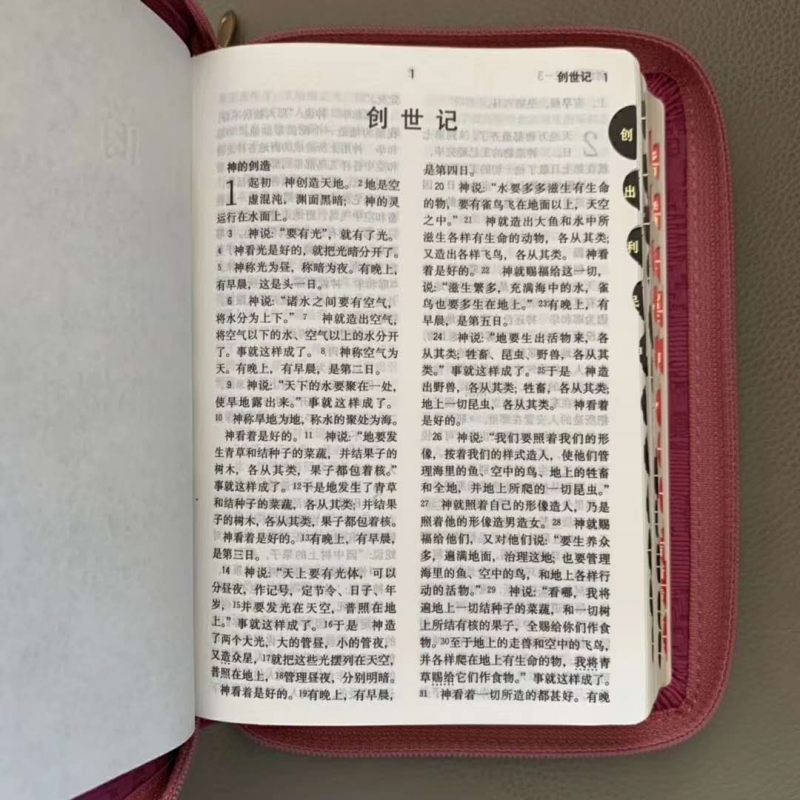 1
创世记 1
创世记
神的创造
1 起初　神创造天地。2地是空
虚混沌，渊面黑暗；　神的灵
运行在水面上。
3　神说：“要有光”，就有了光。
4　神看光是好的，就把光暗分开了。
5　神称光为昼，称暗为夜。有晚上，
有早晨，这是头一日。
6　神说：“诸水之间要有空气，
将水分为上下。”7　神就造出空气，
将空气以下的水、空气以上的水分开
了。事就这样成了。8　神称空气为
天。有晚上，有早晨，是第二日。
9　神说：“天下的水要聚在一处，
使旱地露出来。”事就这样成了。
10　神称旱地为地，称水的聚处为海。
神看着是好的。11　神说：“地要发
生青草和结种子的菜蔬，并结果子的
树木，各从其类，果子都包着核。”
事就这样成了。12于是地发生了青草
和结种子的菜蔬，各从其类；并结果
子的树木，各从其类，果子都包着核。
神看着是好的。13有晚上，有早晨，
是第三日。
14　神说：“天上要有光体，可以
分昼夜，作记号，定节令、日子、年
岁，15并要发光在天空，普照在地
上。”事就这样成了。16于是　神造
了两个大光，大的管昼，小的管夜，
又造众星，17就把这些光摆列在天空，
普照在地上，18管理昼夜，分别明暗。
神看着是好的。19有晚上，有早晨，
是第四日。
20　神说：“水要多多滋生有生命
的物，要有雀鸟飞在地面以上，天空
之中。”21　神就造出大鱼和水中所
滋生各样有生命的动物，各从其类；
又造出各样飞鸟，各从其类。　神看
着是好的。22　神就赐福给这一切，
说：“滋生繁多，充满海中的水，雀
鸟也要多生在地上。”23有晚上，有
早晨，是第五日。
24　神说：“地要生出活物来，各
从其类；牲畜、昆虫、野兽，各从其
类。”事就这样成了。25于是　神造
出野兽，各从其类；牲畜，各从其类；
地上一切昆虫，各从其类。　神看着
是好的。
26　神说：“我们要照着我们的形
像，按着我们的样式造人，使他们管
理海里的鱼、空中的鸟、地上的牲畜
和全地，并地上所爬的一切昆虫。”
27　神就照着自己的形像造人，乃是
照着他的形像造男造女。28　神就赐
福给他们，又对他们说：“要生养众
多，遍满地面，治理这地；也要管理
海里的鱼、空中的鸟，和地上各样行
动的活物。”29　神说：“看哪，我将
遍地上一切结种子的菜蔬，和一切树
上所结有核的果子，全赐给你们作食
物。30至于地上的走兽和空中的飞鸟，
并各样爬在地上有生命的物，我将青
草赐给它们作食物。”事就这样成了。
31　神看着一切所造的都甚好。有晚
创
出
利
民